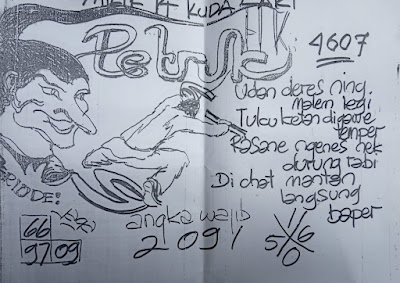 KUDA LARI
Petruk
4607
Udan deres ning
malem legi
Tuku ketan digawe
temper
Rasane ngenes nek
durung rabi
Di chat mantan
langsung
baper
66
97 09
angka wajib
2091
1 6
5 0